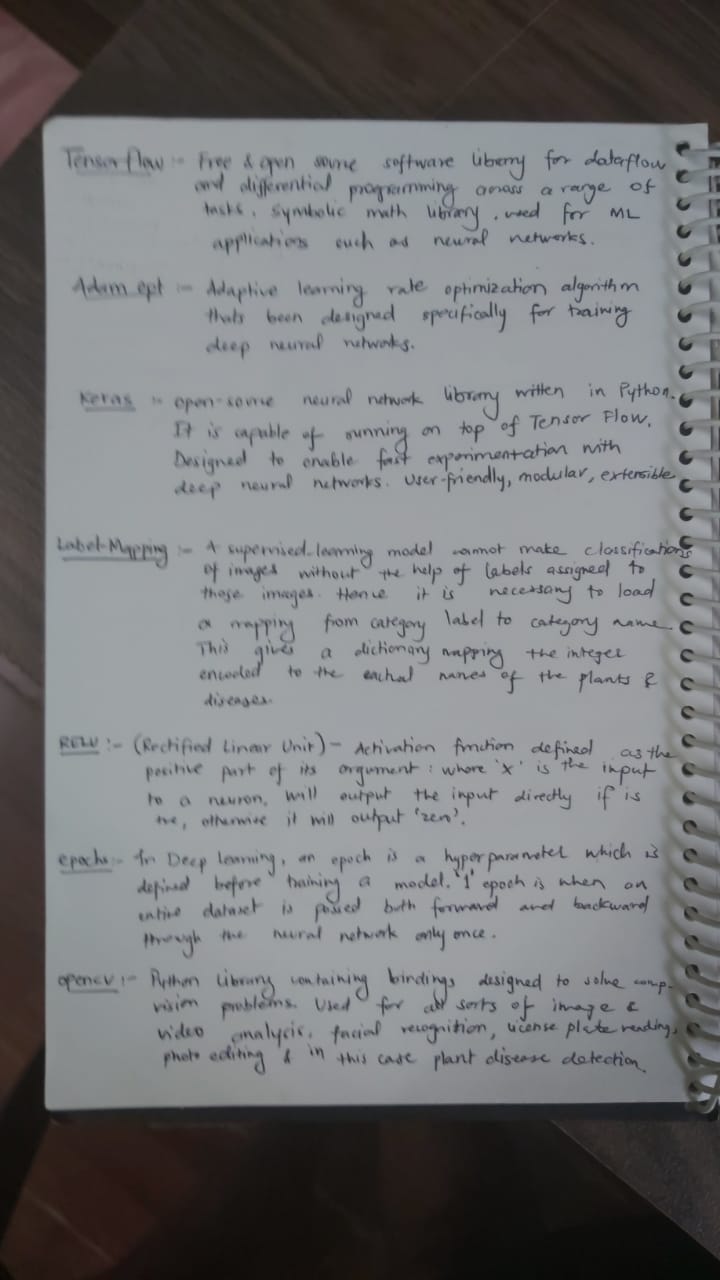 Tensorflow :- Free & open sourse software liberry for dataflow
and differential programming across a range of
tasks. Symbolic math library, used for ML
applications such as neural networks.
Adam opt :- Adaptive learning rate optimization algorithm
thats been designed specifically for training
deep neural networks.
Keras :- open-sourse neural network library written in Python.
It is capable of running on top of Tensor Flow.
Designed to enable fast experimentation with
deep neural networks. User-friendly, modular, extensible
Label-Mapping :- A supervised-learning model cannot make classifications
of images without the help of labels assigned to
those images. Hence it is necessary to load
a mapping from category label to category name.
This gives a dictionary mapping the integer
encoded to the names of the plants &
diseases.
RELU :- (Rectified Linear Unit) - Activation function defined as the
positive part of its argument : where 'x' is the input
to a neuron, will output the input directly if is
+ve, otherwise it will output 'zero'.
epochs :- In Deep learning, an epoch is a hyperparameter which is
defined before training a model. '1' epoch is when an
entire dataset is passed both forward and backward
through the neural network only once.
opencv :- Python Library containing bindings designed to solve comp.
vision problems. Used for all sorts of image &
video analysis, facial recognition, license plate reading,
photo editing & in this case plant disease detection.